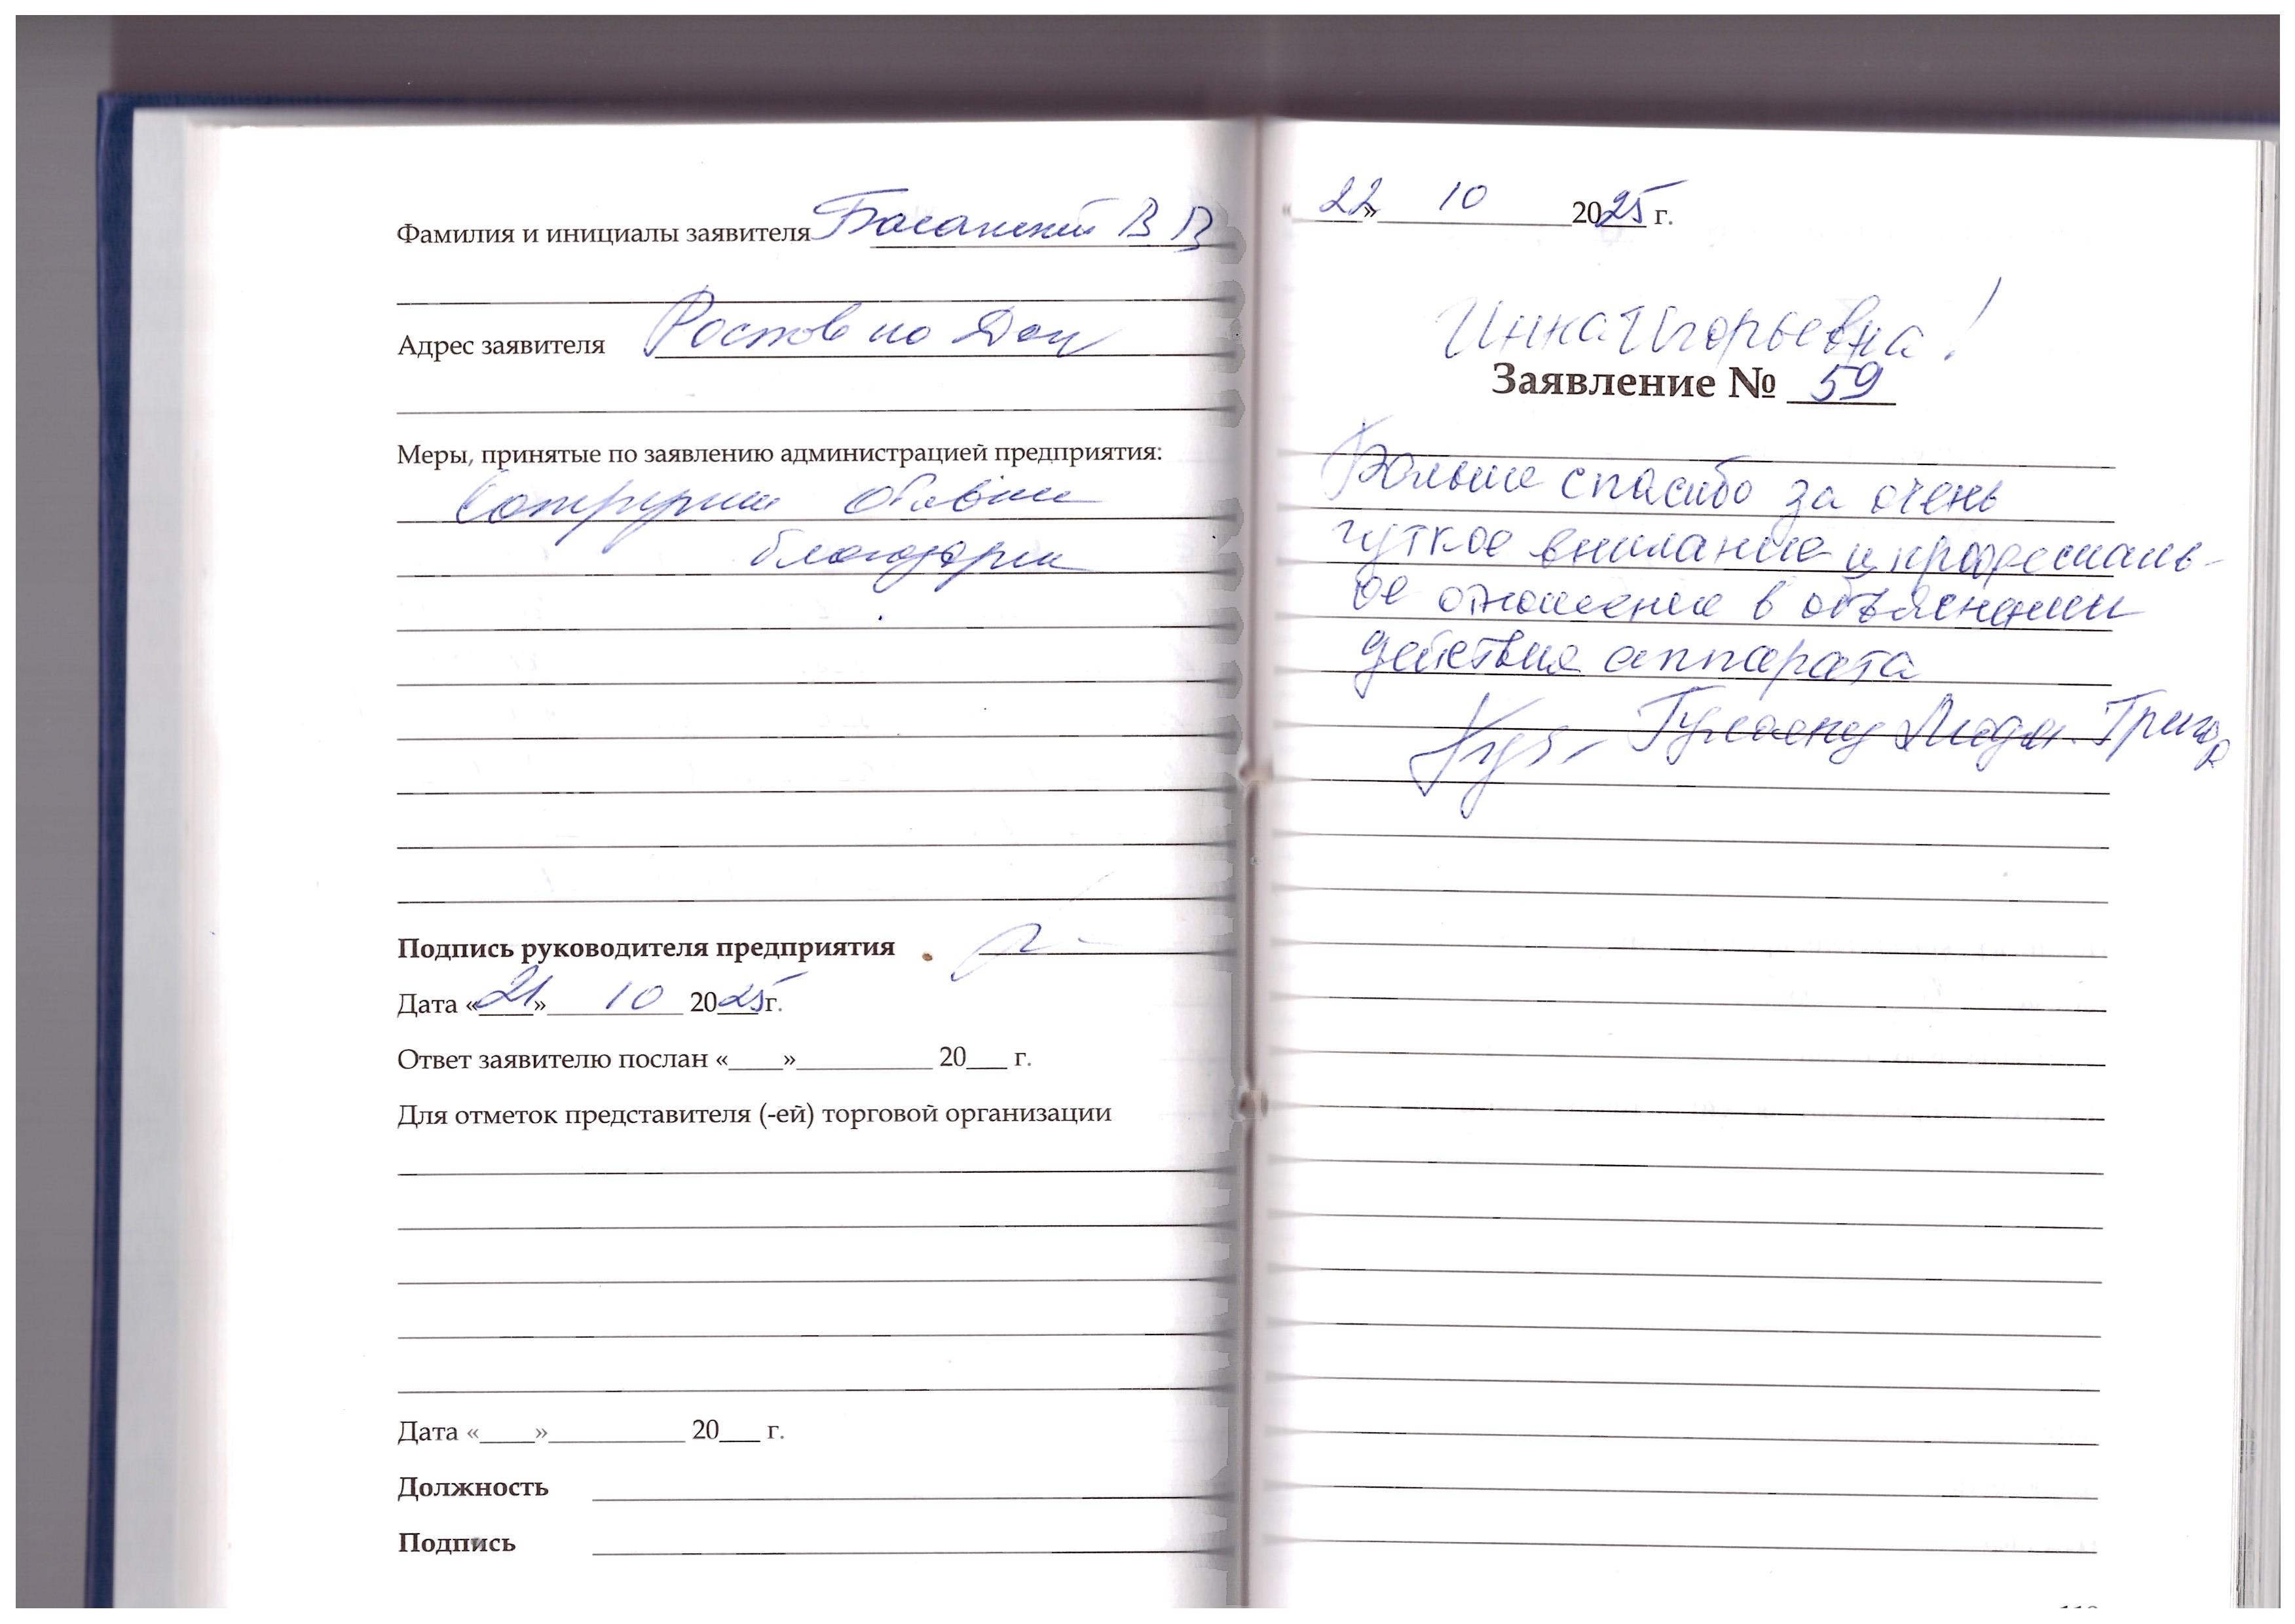 Фамилия и инициалы заявителя Басанский В В
Адрес заявителя Ростов на Дону
Меры, принятые по заявлению администрацией предприятия:
Сотруднице объявлена
благодарность
Подпись руководителя предприятия
Дата «21» 10 2025 г.
Ответ заявителю послан «____»__________ 20___ г.
Для отметок представителя (-ей) торговой организации
Дата «____»__________ 20___ г.
Должность
Подпись
22» 10 2025 г.
Инна Игорьевна!
Заявление № 59
Большое спасибо за очень
чуткое внимание и професиаль-
ое отношение в объяснении
действия аппарата
Людм. Григор